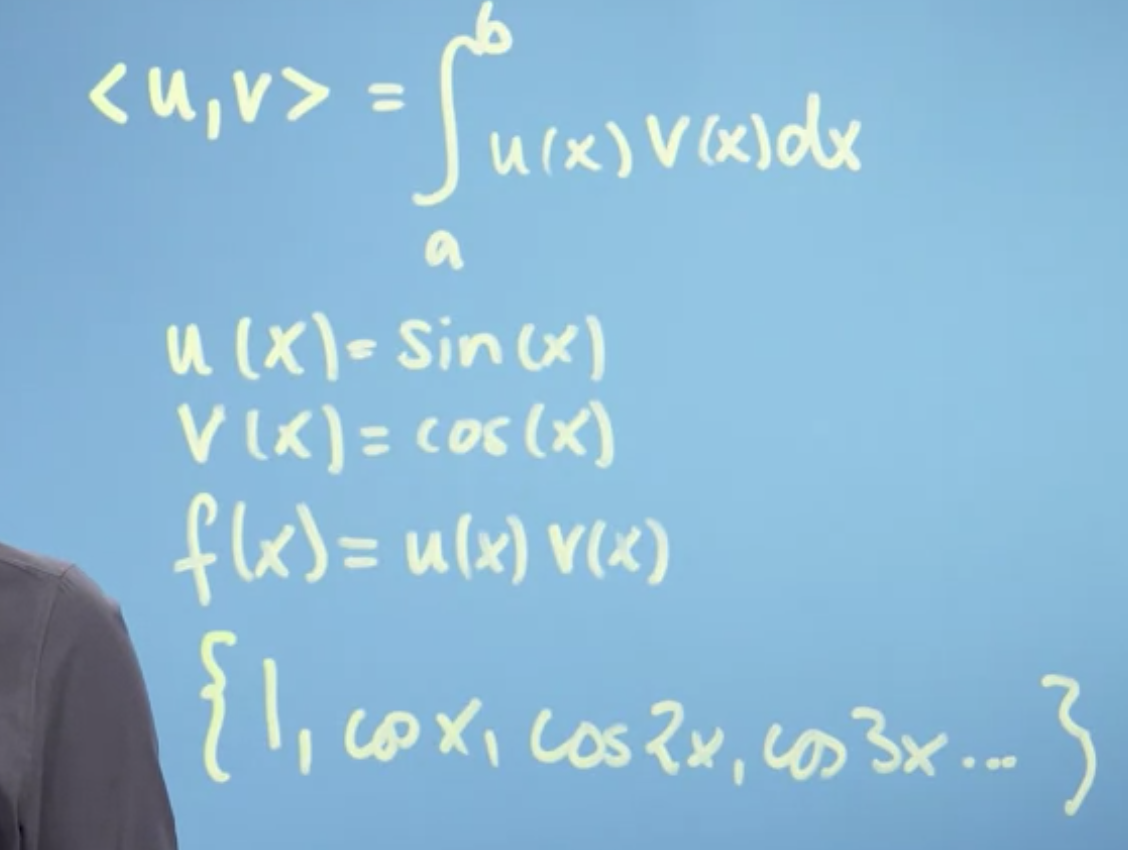 <u,v> = ∫ₐᵇ u(x) v(x) dx
u(x) = sin(x)
v(x) = cos(x)
f(x) = u(x) v(x)
{1, cos x, cos 2x, cos 3x ... }